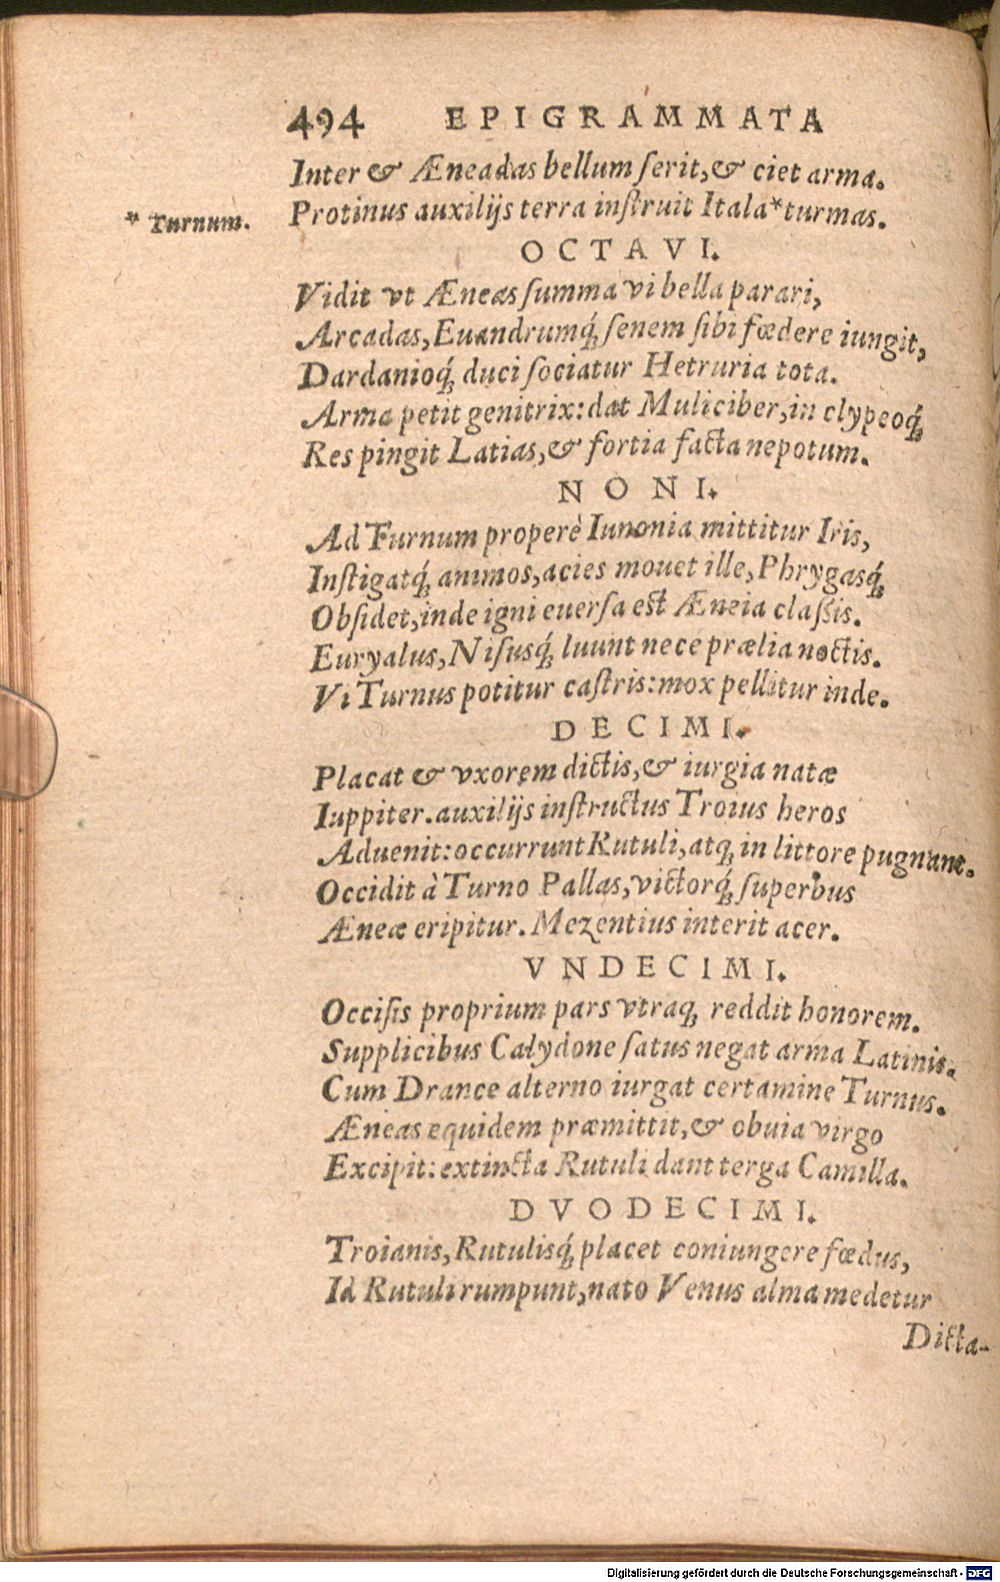 494 EPIGRAMMATA
Inter & Æneadas bellum ſerit, & ciet arma.
* Turnum.
Protinus auxilijs terra inſtruit Itala * turmas.
OCTAVI.
Vidit vt Æneas ſumma vi bella parari,
Arcadas, Euandrumq́; ſenem ſibi fœdere iungit,
Dardanioq́; duci ſociatur Hetruria tota.
Arma petit genitrix: dat Muliciber, in clypeoq́;
Res pingit Latias, & fortia facta nepotum.
NONI.
Ad Turnum properè Iunonia mittitur Iris,
Inſtigatq́; animos, acies mouet ille, Phrygasq́;
Obſidet, inde igni euerſa eſt Æneia claſsis.
Euryalus, Niſusq́; luunt nece prælia noctis.
Vi Turnus potitur caſtris: mox pellitur inde.
DECIMI.
Placat & vxorem dictis, & iurgia natæ
Iuppiter. auxilijs inſtructus Troius heros
Aduenit: occurrunt Rutuli, atq; in littore pugnant.
Occidit à Turno Pallas, victorq́; ſuperbus
Æneæ eripitur. Mezentius interit acer.
VNDECIMI.
Occiſis proprium pars vtraq; reddit honorem.
Supplicibus Calydone ſatus negat arma Latinis.
Cum Drance alterno iurgat certamine Turnus.
Æneas equidem præmittit, & obuia virgo
Excipit: extincta Rutuli dant terga Camilla.
DVODECIMI.
Troianis, Rutulisq́; placet coniungere fœdus,
Id Rutuli rumpunt, nato Venus alma medetur
Dicta-
Digitalisierung gefördert durch die Deutsche Forschungsgemeinschaft - DFG